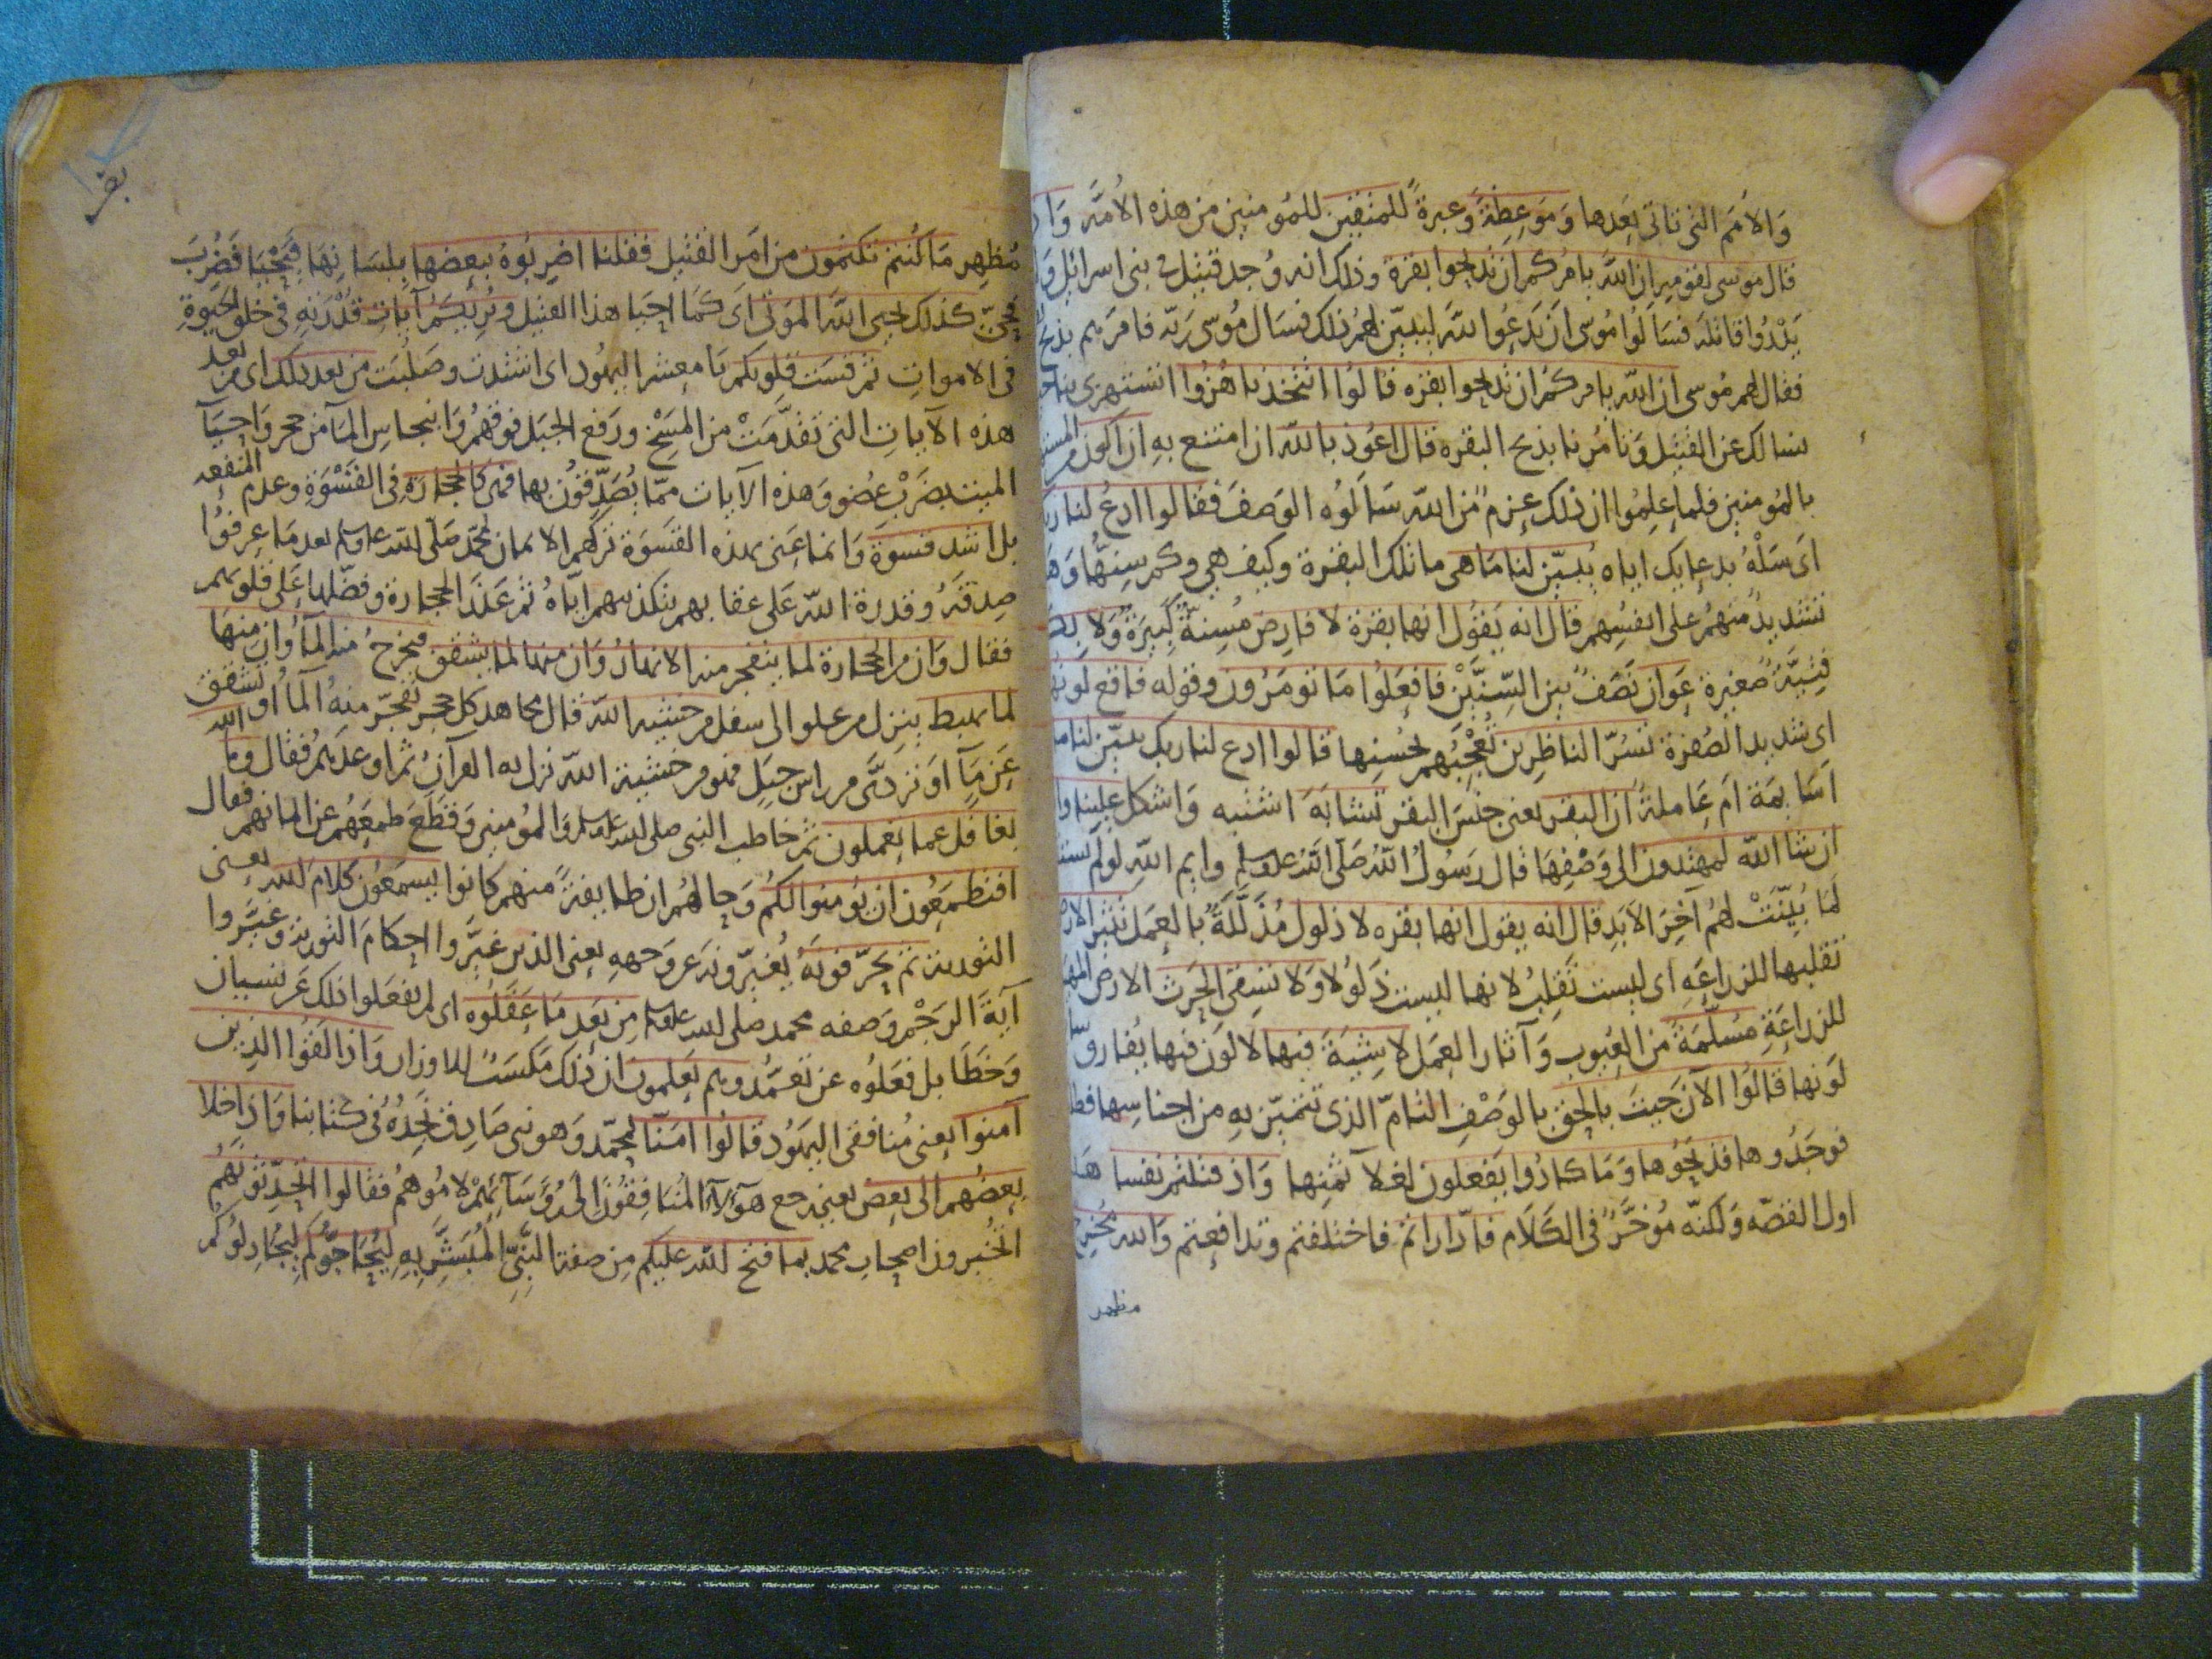 وَالأمَم التى تاتى بعدها وَمَوعِظةً وَعبرةً للمتقين للمُومنين من هذه الأمّة وَاذ
قال موسى لقومه ان اللّه يامركم ان تذبحوا بقرة وذلك انه وُجد قتيل فى بنى اسرائل وَلم
يَدْرُوا قاتله فسَالُوا مُوسى ان يَدعُوا اللّه ليبيّن لهم ذلك فسَال مُوسى ربّه فامرهم بذبح
فقال لهم مُوسى ان اللّه يامركمُ ان تذبحوا بقره قالُوا اتتخذنا هُزُوا اتستهزى بنا
نسالك عن القتيل وَتامُرنا بذبح البقره قال اعُوذ باللّه ان امتنع بهِ ان اكون من المستهزين
بالمُومنين فلما عَلِمُوا ان ذلك عزمٌ من اللّه سَالُوه الوَصفَ فقالوا ادعُ لنا ربك
اى سَلْهُ بدعايك اياه يُبيّن لنا مَا هى ما تلك البقرة وكيف هى وكم سِنّها وَهذا
تشديدٌ منهُم على انفسُهِم قال انه يَقوُل انها بقرة لا فارِض مُسِنةٌ كبِيرَة وَلا بكر
فتِيَّة صغيرة عَوَان نَصَفٌ بين السِّنَّيْن فافعَلُوا مَا تومَرُون وقوله فاقع لونها
اى شديد الصُفرة تسُرّ الناظِرين تُعْجِبُهم بحُسنِها قالوا ادع لنا ربك يبيّن لنا ما هى
اَسَايمَة اَم عَاملةً ان البقر يعنى جنْسَ البقر تشابَهَ اشتبه وَاشكل علينا وانا
ان شا اللّه لمهتدون الى وَصْفِهَا قال رَسُولُ اللّه صَلّى اللّه عليه وسلم وايم اللّهِ لو لم يستثنوا
لَمَا بُيِّنَتْ لهُم آخِرَ الاَبَدِ قال انه يقول انها بقره لا ذلول مُذَلَّلَةٌ بالعمَل تثير الارض
تقلبها للزراعَهِ اى ليست تَقلِبُ لانها ليست ذَلُولا وَلا تسقى الحَرث الارض المهياة
للزراعَةِ مُسَلَّمَةٌ من العُيوب وَآثار العمَل لا شِيَةَ فيها لا لون فيها يُفارق سائر
لَونها قالُوا الآن جيتَ بالحق بالوَصْفِ التامّ الذى تتميّز بهِ من اجناسِها فطلبوها
فوجدُوها فذبحُوها وَمَا كادُوا يَفعلون لغلآ ثمنها وَاذ قتلتم نفسا هذا
اول القصّه وَلكنّه مُؤخّرٌ فى الكَلَام فادّاراتم فاختلفتم وتدافعتم وَاللّه مخرج
مظهر
مُظهِر مَا كُنتم تكتمُون من امَر القتيل فقلنا اضربُوهُ ببعضها بِلسَانِهَا فيَحْيَا فَضُرِبَ
فحيىّ كذلك يحيى اللّه المَوتى اى كمَا احيَا هذا القتيل وَيُريكم آياتِ قُدْرَتهِ فى خلق الحيوةِ
فى الاموات ثم قسَت قلوبكم يَا مِعشر اليهُود اى اشتدت وصَلُبَت من بعد ذلك اى من بعد
هذه الآيات التى تقدَّمَتْ من المَسْخ ورَفع الجبَل فوقهُم وَانبجاس المآ من حجر وَاحيَآ
الميت بضرْبِ عُضو وَهذه الايات ممّا يُصَدِّقوُن بها فهى كالحجارَةِ فى القَسْوَة وعدم المنفعه
بل اشد قسوَةً وَانما عَنى بهذه القَسوَة تركهم الايمان بمحمّد صَلّى اللّه عليه وسلم بعدمَا عرفوُا
صِدقَهُ وقدرة اللّه عَلى عقابهم بتكذيبهم ايّاهُ ثم عَذَرَ الحجارة وفضّلها عَلى قلوبهم
فقال وَان من الحجارة لما يتفجر منه الانهارُ وَان منها لما يشقق فيخرجُ منه المآ وَان منها
لما يهبط يَنزل من علو الى سفل من خشيه اللّه قال مجاهد كل حجر تفجّر منهُ المآ او تشقق
عن مَآ اوَ تردَّى من راس جبَل فهو من خشية اللّه نزل به القرآن ثم اوعدَهُم فقال وَما اللّه
بغافل عما تعملون ثم خاطب النبى صلى اللّه عليه وسلم وَالمُومنين وَقَطَعَ طمَعَهُم عن ايمانهم فقال
افتطمَعُون ان يُومنوا لكُم وَحالهُم ان طايفةً منهم كانوا يسمَعُون كلامَ اللّه يعنى
التورية ثم يحرّفونهُ يُغيرّونه عن وَجههِ يعنى الذين غيَّروا احكامَ التورية وَغيَّروا
آيَةَ الرَجْم وَصفه محمد صلى اللّه عليه وسلم مِن بَعد مَا عَقلُوه اى لم يفعلوا ذلك عَن نسيان
وَخَطَأ بل فعَلوُه عن تعَمُّد وهم يَعلمون ان ذلك مَكسَبٌ للاوزار وَاذا لَقوُا الذين
آمنوا يعنى مُنافقى اليهُود قالوا امَنّا بمحمّد وَهو نبى صَادِق نَجِدُهُ فى كتابنا وَاذا خلا
بعضُهم الى بعض يعنى رجع هَؤلآء المُنَافِقُون الى رُؤسَآئِهِمْ لامُوهُم فقالوا اتُحَدِّثونَهُم
اتُخبرون اصحاب محمد بما فتح اللّه عليكم مِن صفة النَّبِىّ المُبَشَّر بهِ لِيُحَاجّوُكُم لِيُجَادِلُوكُم